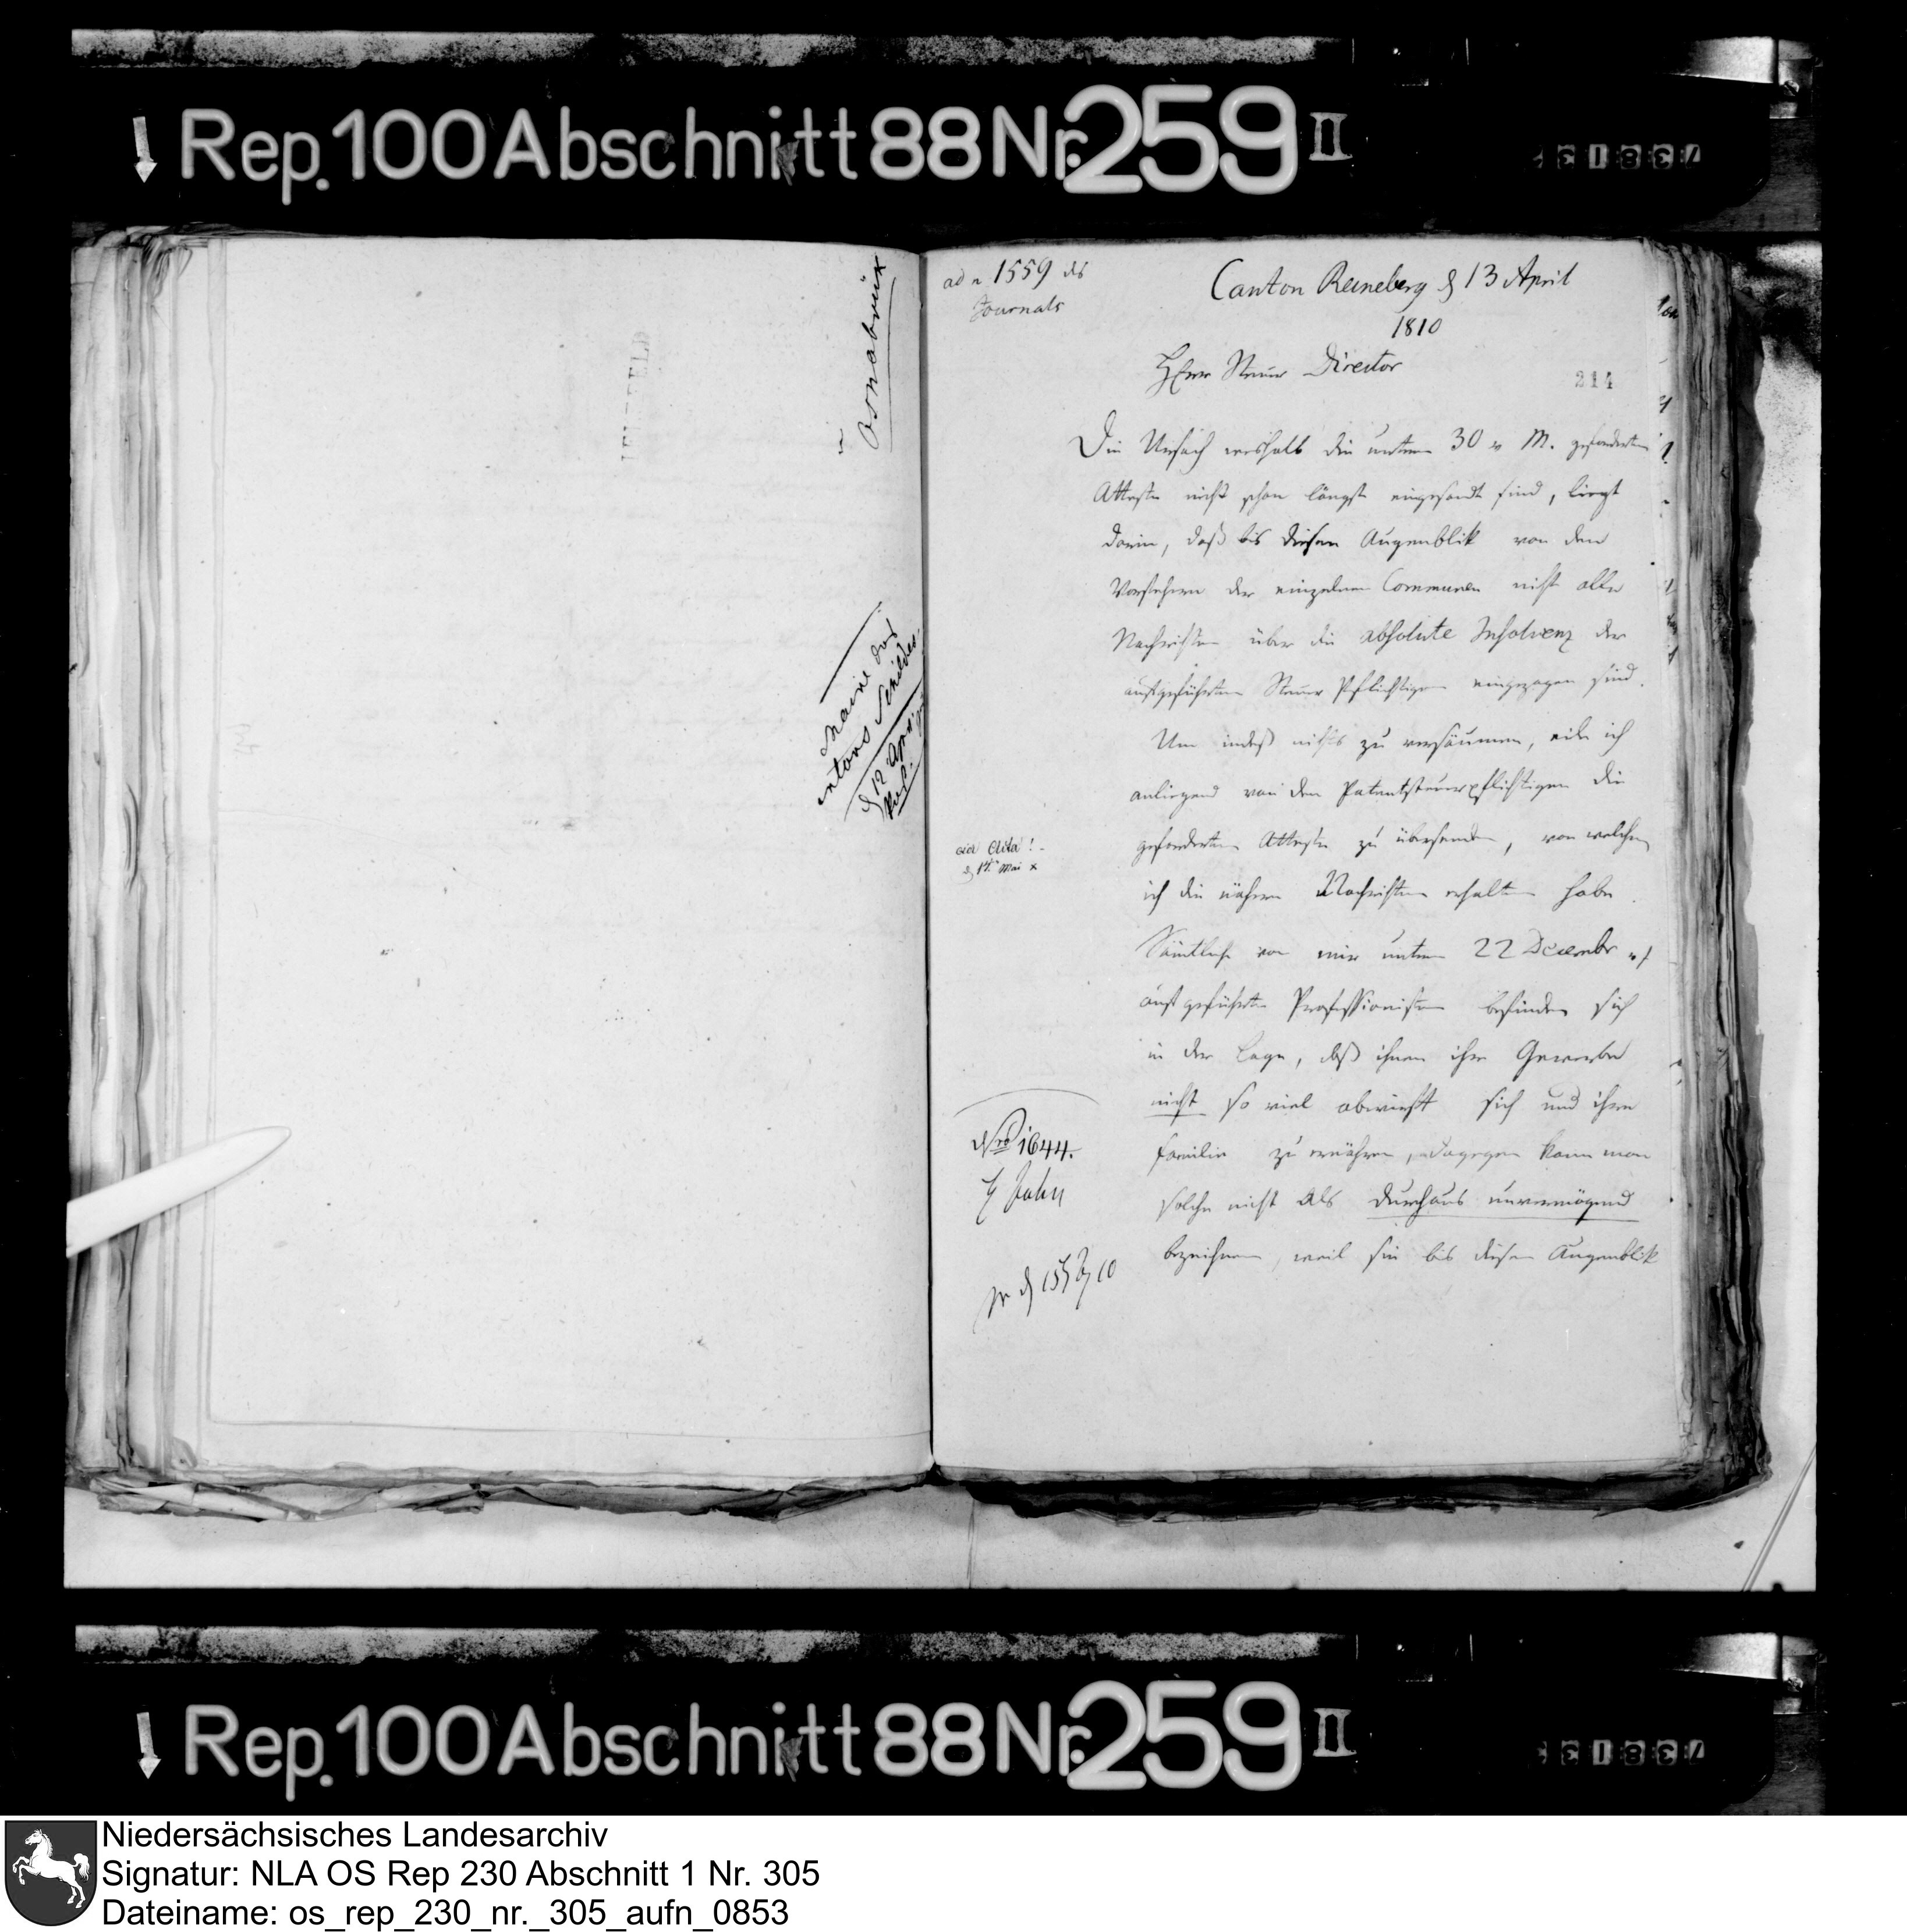 Rep. 100 Abschnitt 88 Nr. 259 II
73813
Osnabrück
Maire des
Cantons
d 12 April
ad n 1559 des
Journals
Canton Reineberg d 13 April
1810
214
Herr Steuer Director
Die Ursach weshalb die unterm 30 v M. geforderten
Atteste nicht schon längst eingesandt sind, liegt
darin, daß bis diesen Augenblik von den
Vorstehern der einzelnen Communen nicht alle
Nachrichten über die absolute Insolvenz der
aufgeführten Steuer Pflichtigen eingezogen sind.
Um indeß nichts zu versäumen, eile ich
anliegend von den Patentsteuerpflichtigen die
geforderten Atteste zu übersenden, von welchen
ich die nähern Nachrichten erhalten habe.
ad Acta!
d 14 Mai
Sämtliche von mir unterm 22 Decembr v J
aufgeführte Professionisten befinden sich
in der Lage, daß ihnen ihr Gewerbe
nicht so viel abwirft sich und ihre
Familie zu ernähren, dagegen kann man
solche nicht als durchaus unvermögend
bezeichnen, weil sie bis diesen Augenblik
Nro 1644.
Rep. 100 Abschnitt 88 Nr. 259 II
73813
Niedersächsisches Landesarchiv
Signatur: NLA OS Rep 230 Abschnitt 1 Nr. 305
Dateiname: os_rep_230_nr._305_aufn_0853